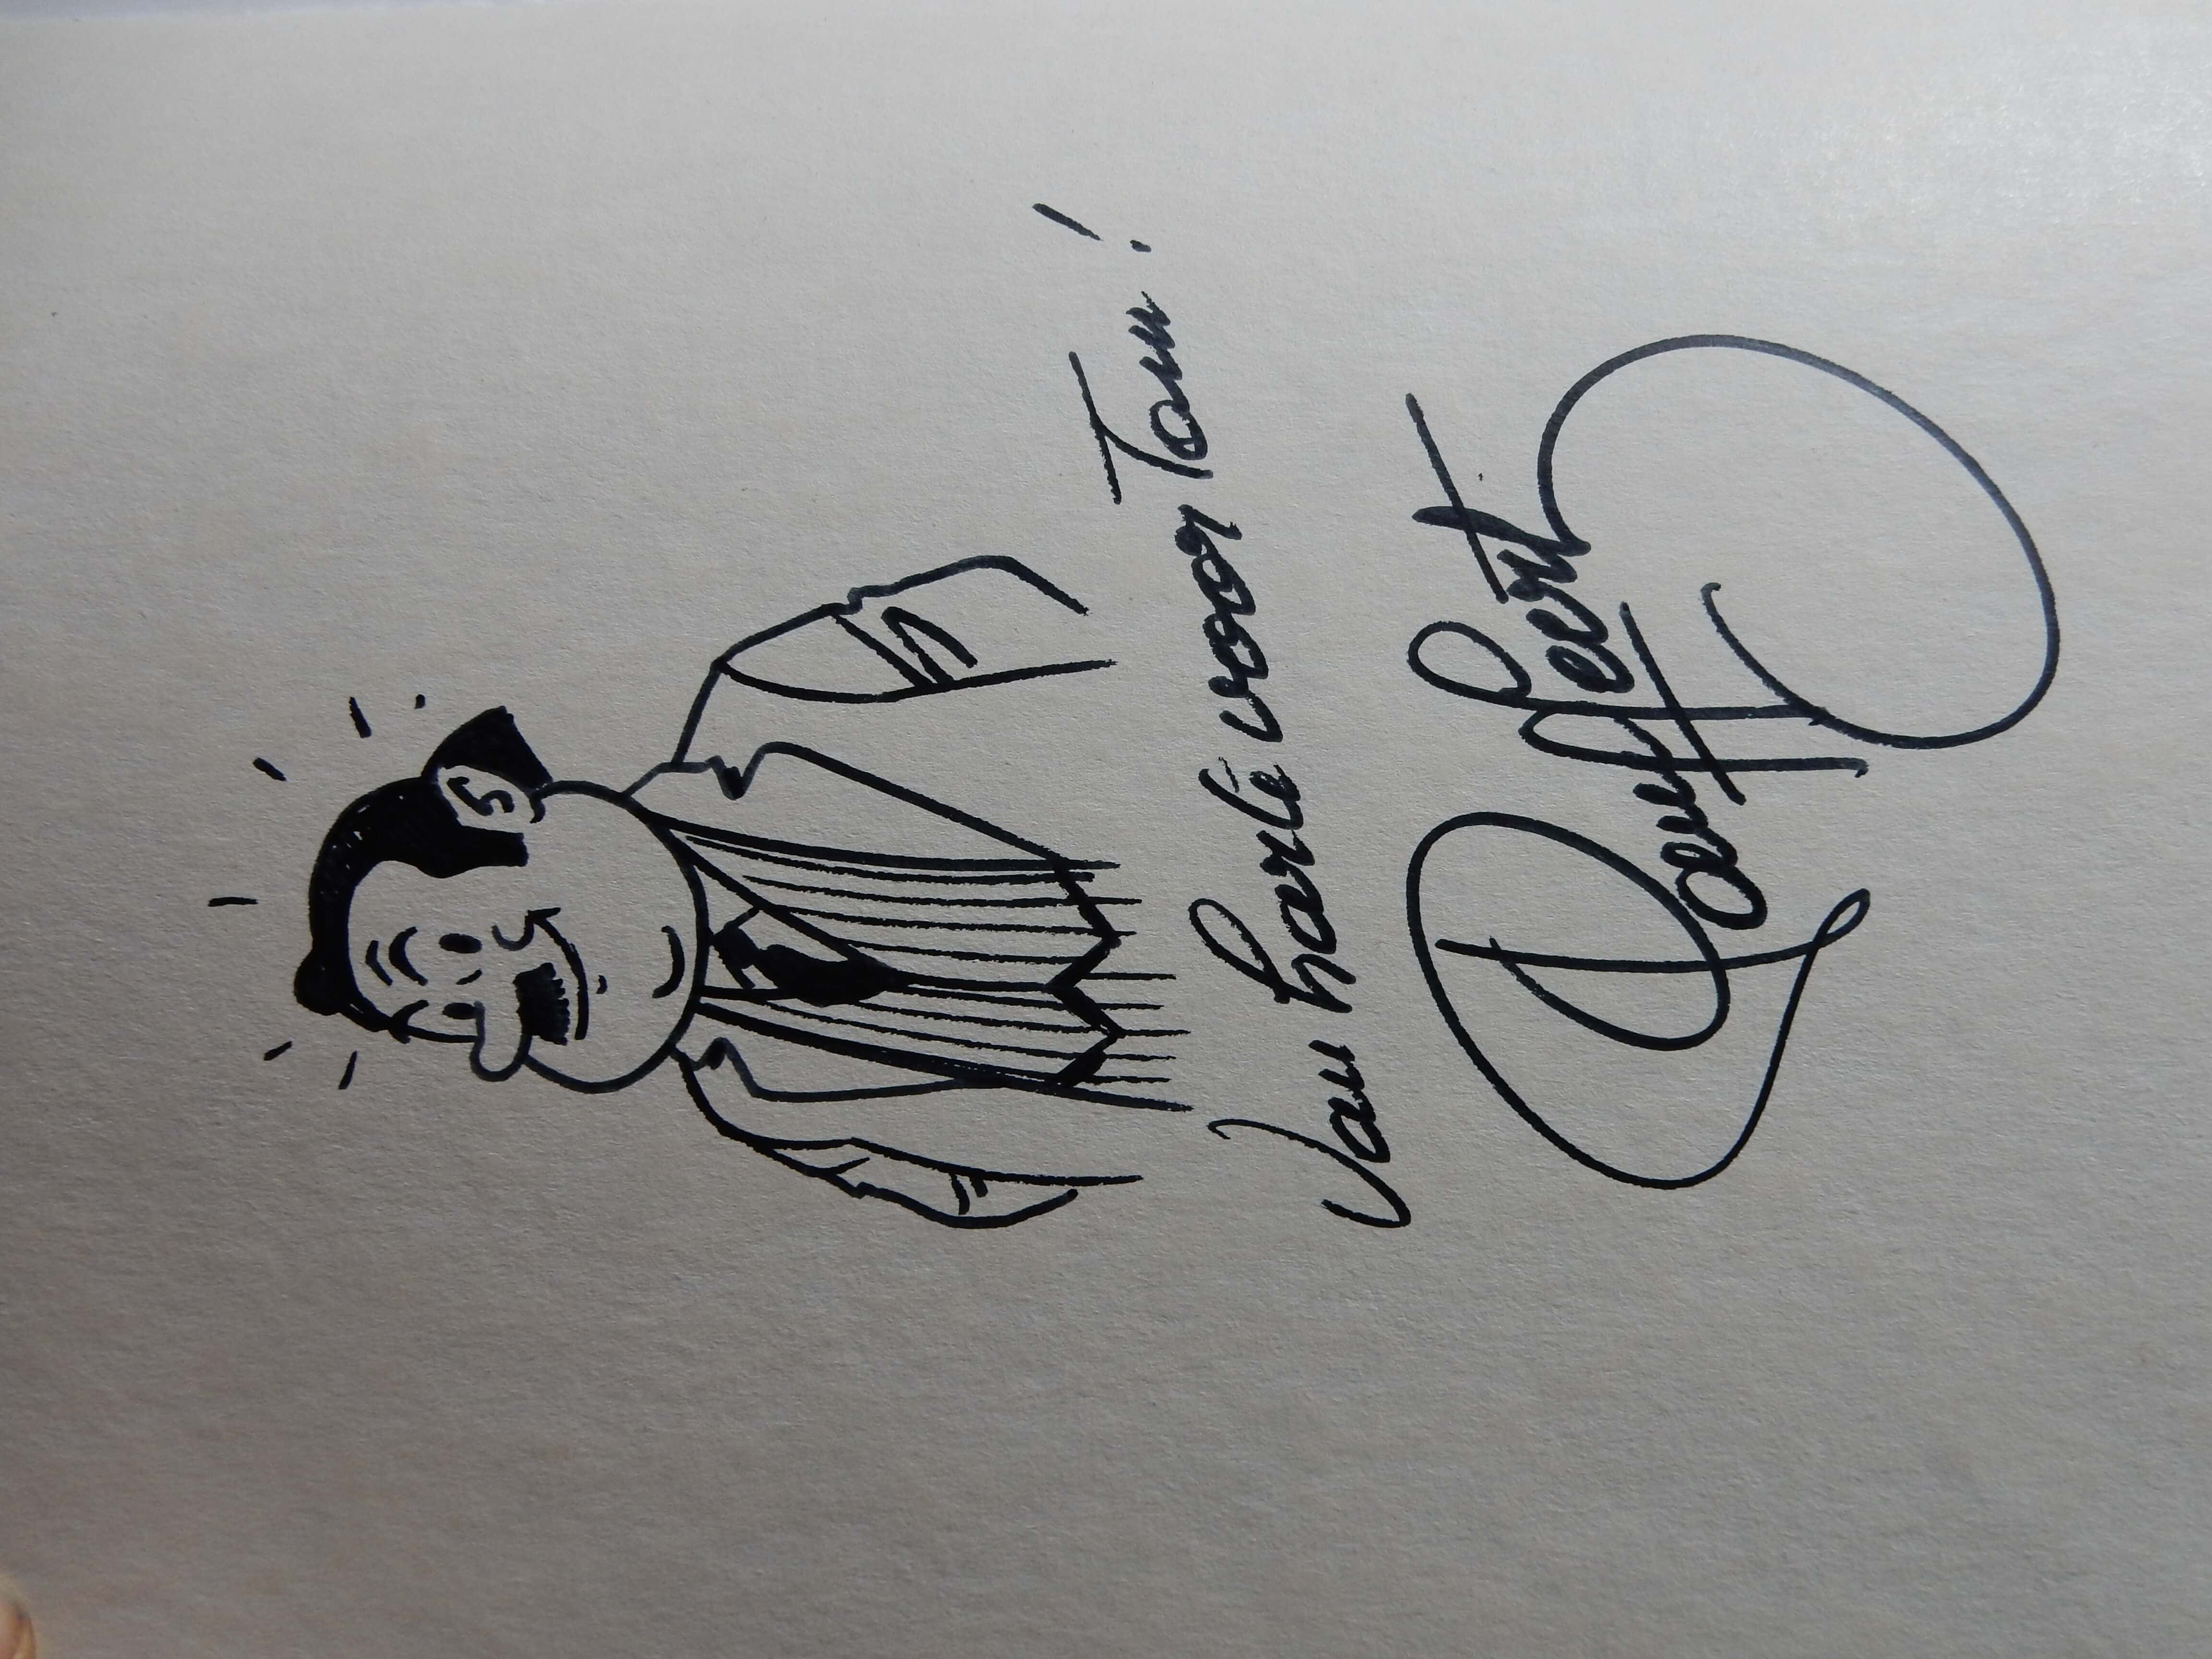 Van harte voor Tom!
Paul Geerts